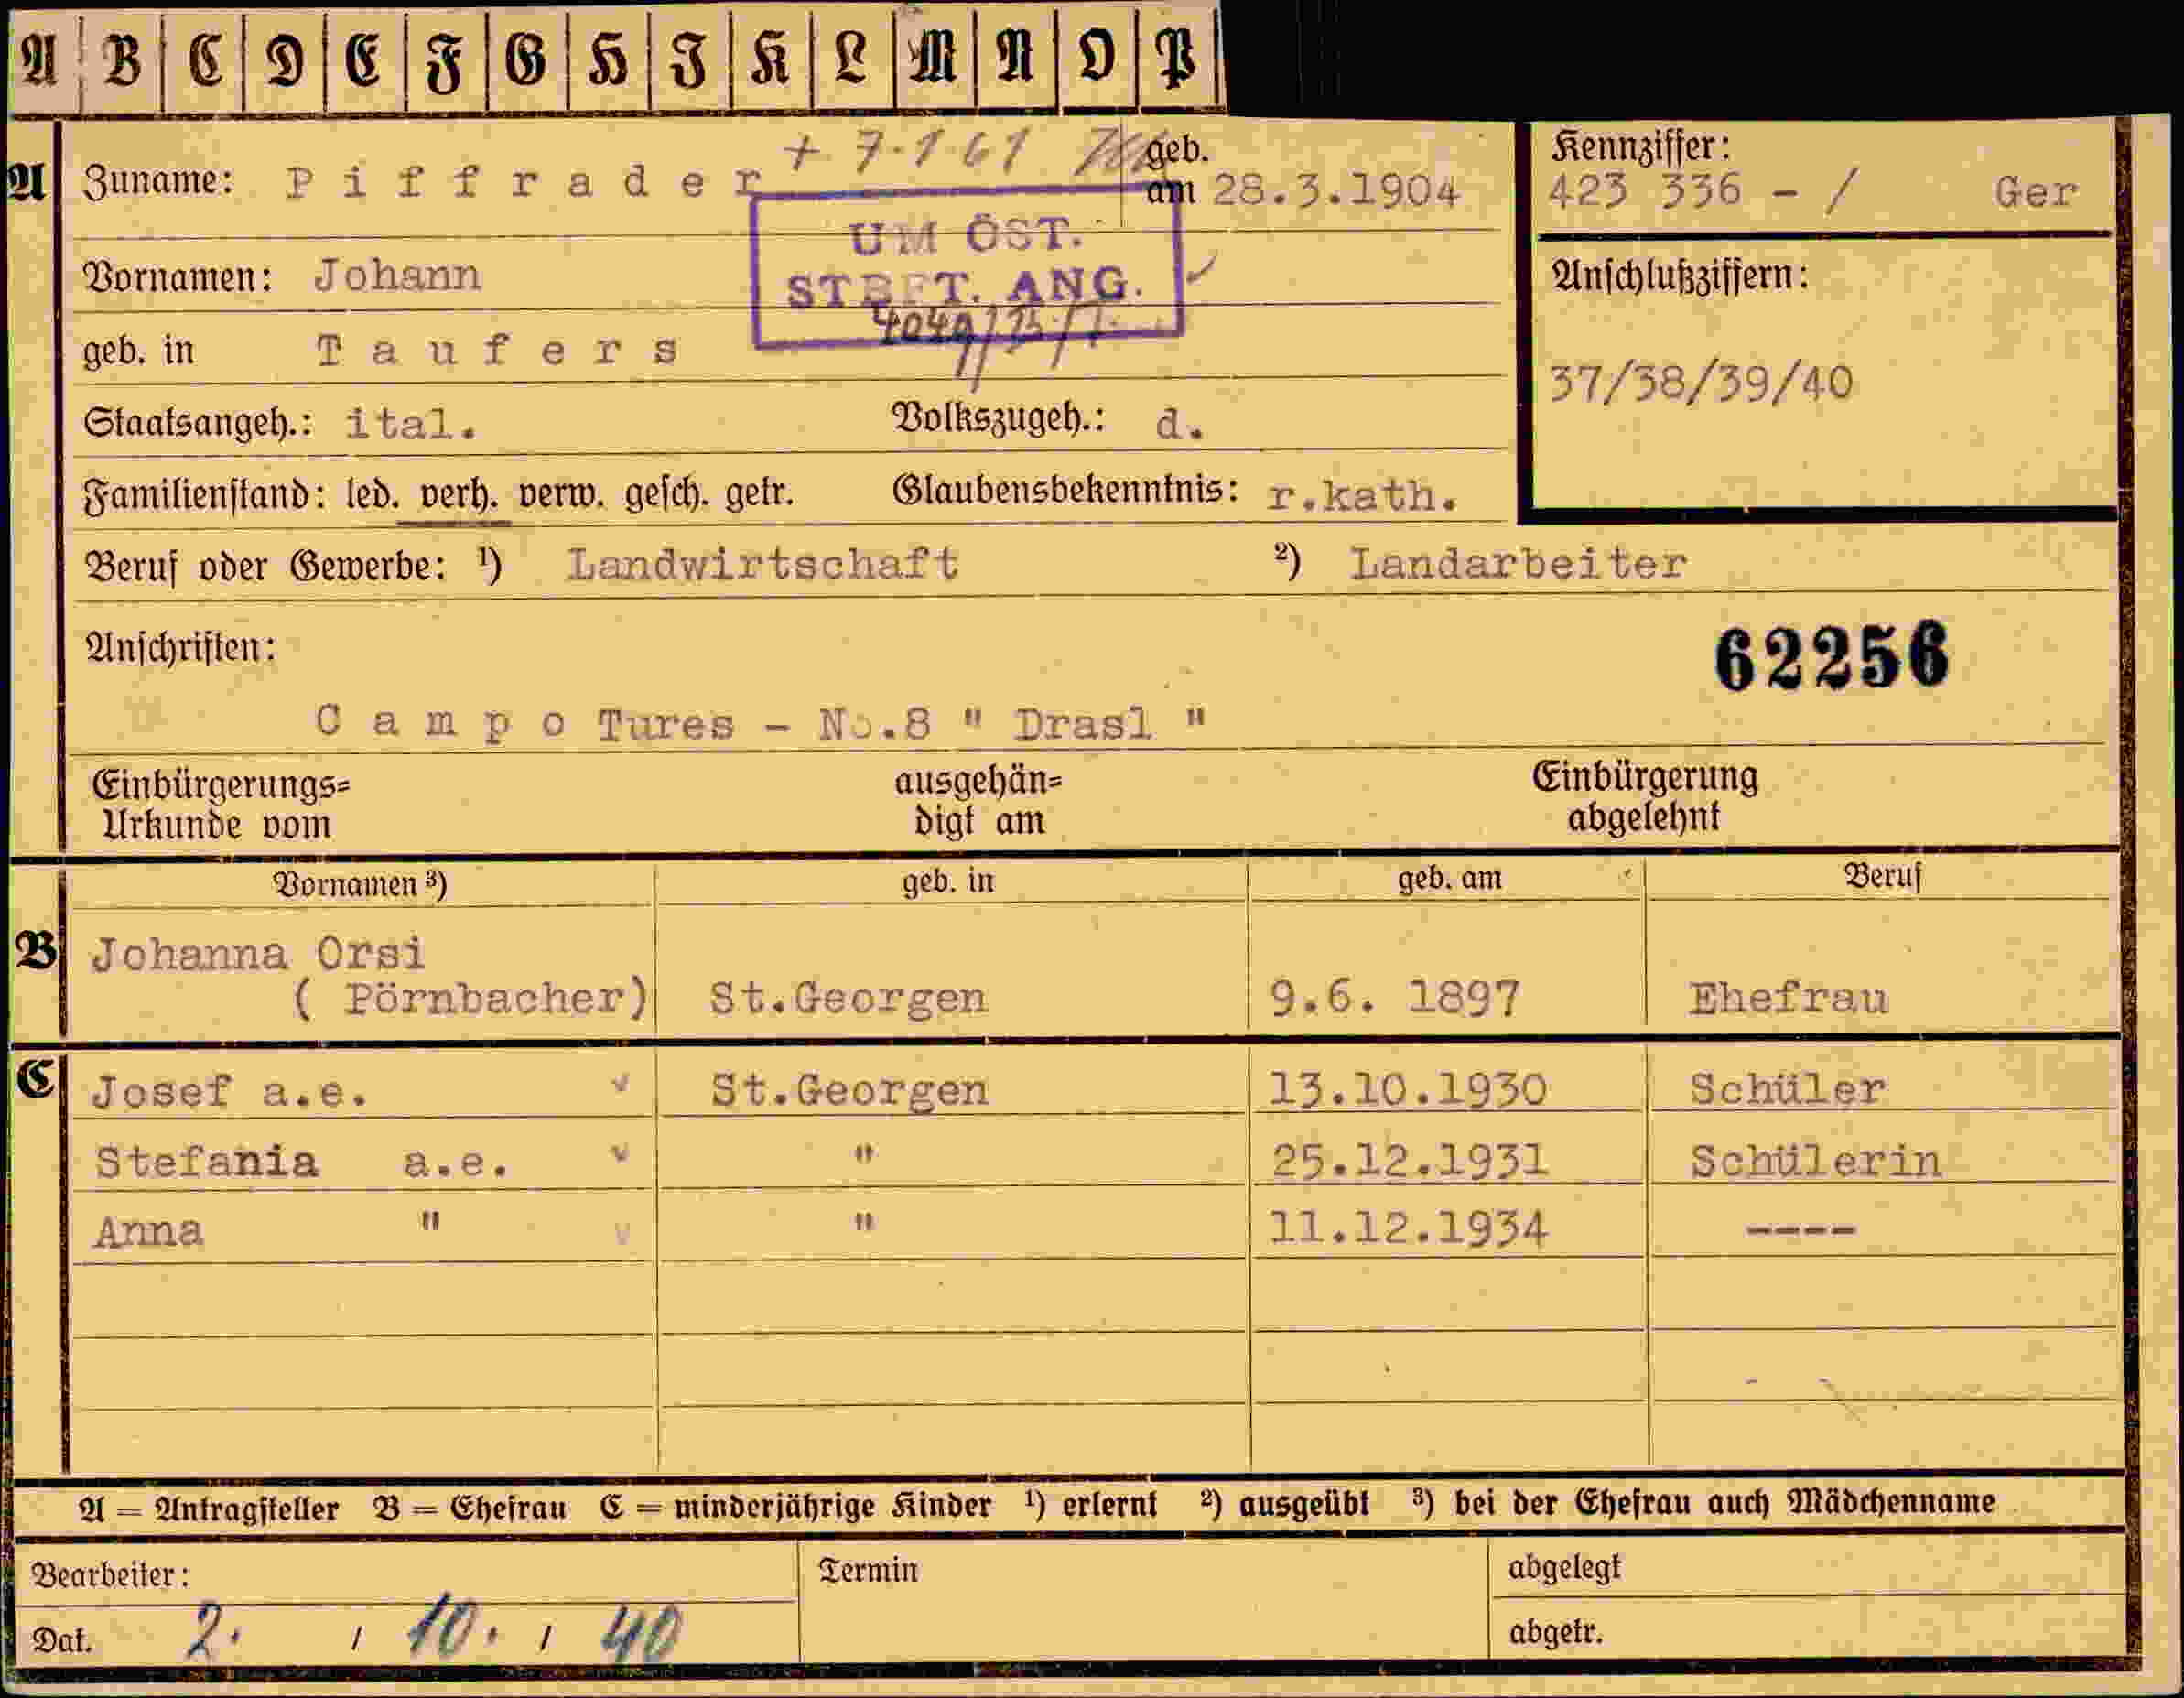 A B C D E F G H I K L M N O P
+ 7.1.61
A Zuname: Piffrader geb. am 28.3.1904
Kennziffer:
423 336 - / Ger
UM ÖST.
STBFT. ANG.
Vornamen: Johann
Anschlußziffern:
geb. in Taufers
37/38/39/40
Staatsangeh.: ital. Volkszugeh.: d.
Familienstand: led. verh. verw. gesch. getr. Glaubensbekenntnis: r.kath.
Beruf oder Gewerbe: ¹) Landwirtschaft ²) Landarbeiter
Anschriften:
62256
Campo Tures - No.8 " Drasl "
Einbürgerungs= ausgehän= Einbürgerung
Urkunde vom digt am abgelehnt
Vornamen ³) geb. in geb. am Beruf
B Johanna Orsi
( Pörnbacher) St.Georgen 9.6. 1897 Ehefrau
C Josef a.e. v St.Georgen 13.10.1930 Schüler
Stefania a.e. v " 25.12.1931 Schülerin
Anna " v " 11.12.1934 ----
A = Antragsteller B = Ehefrau C = minderjährige Kinder ¹) erlernt ²) ausgeübt ³) bei der Ehefrau auch Mädchenname
Bearbeiter: Termin abgelegt
Dat. 2. / 10. / 40 abgetr.